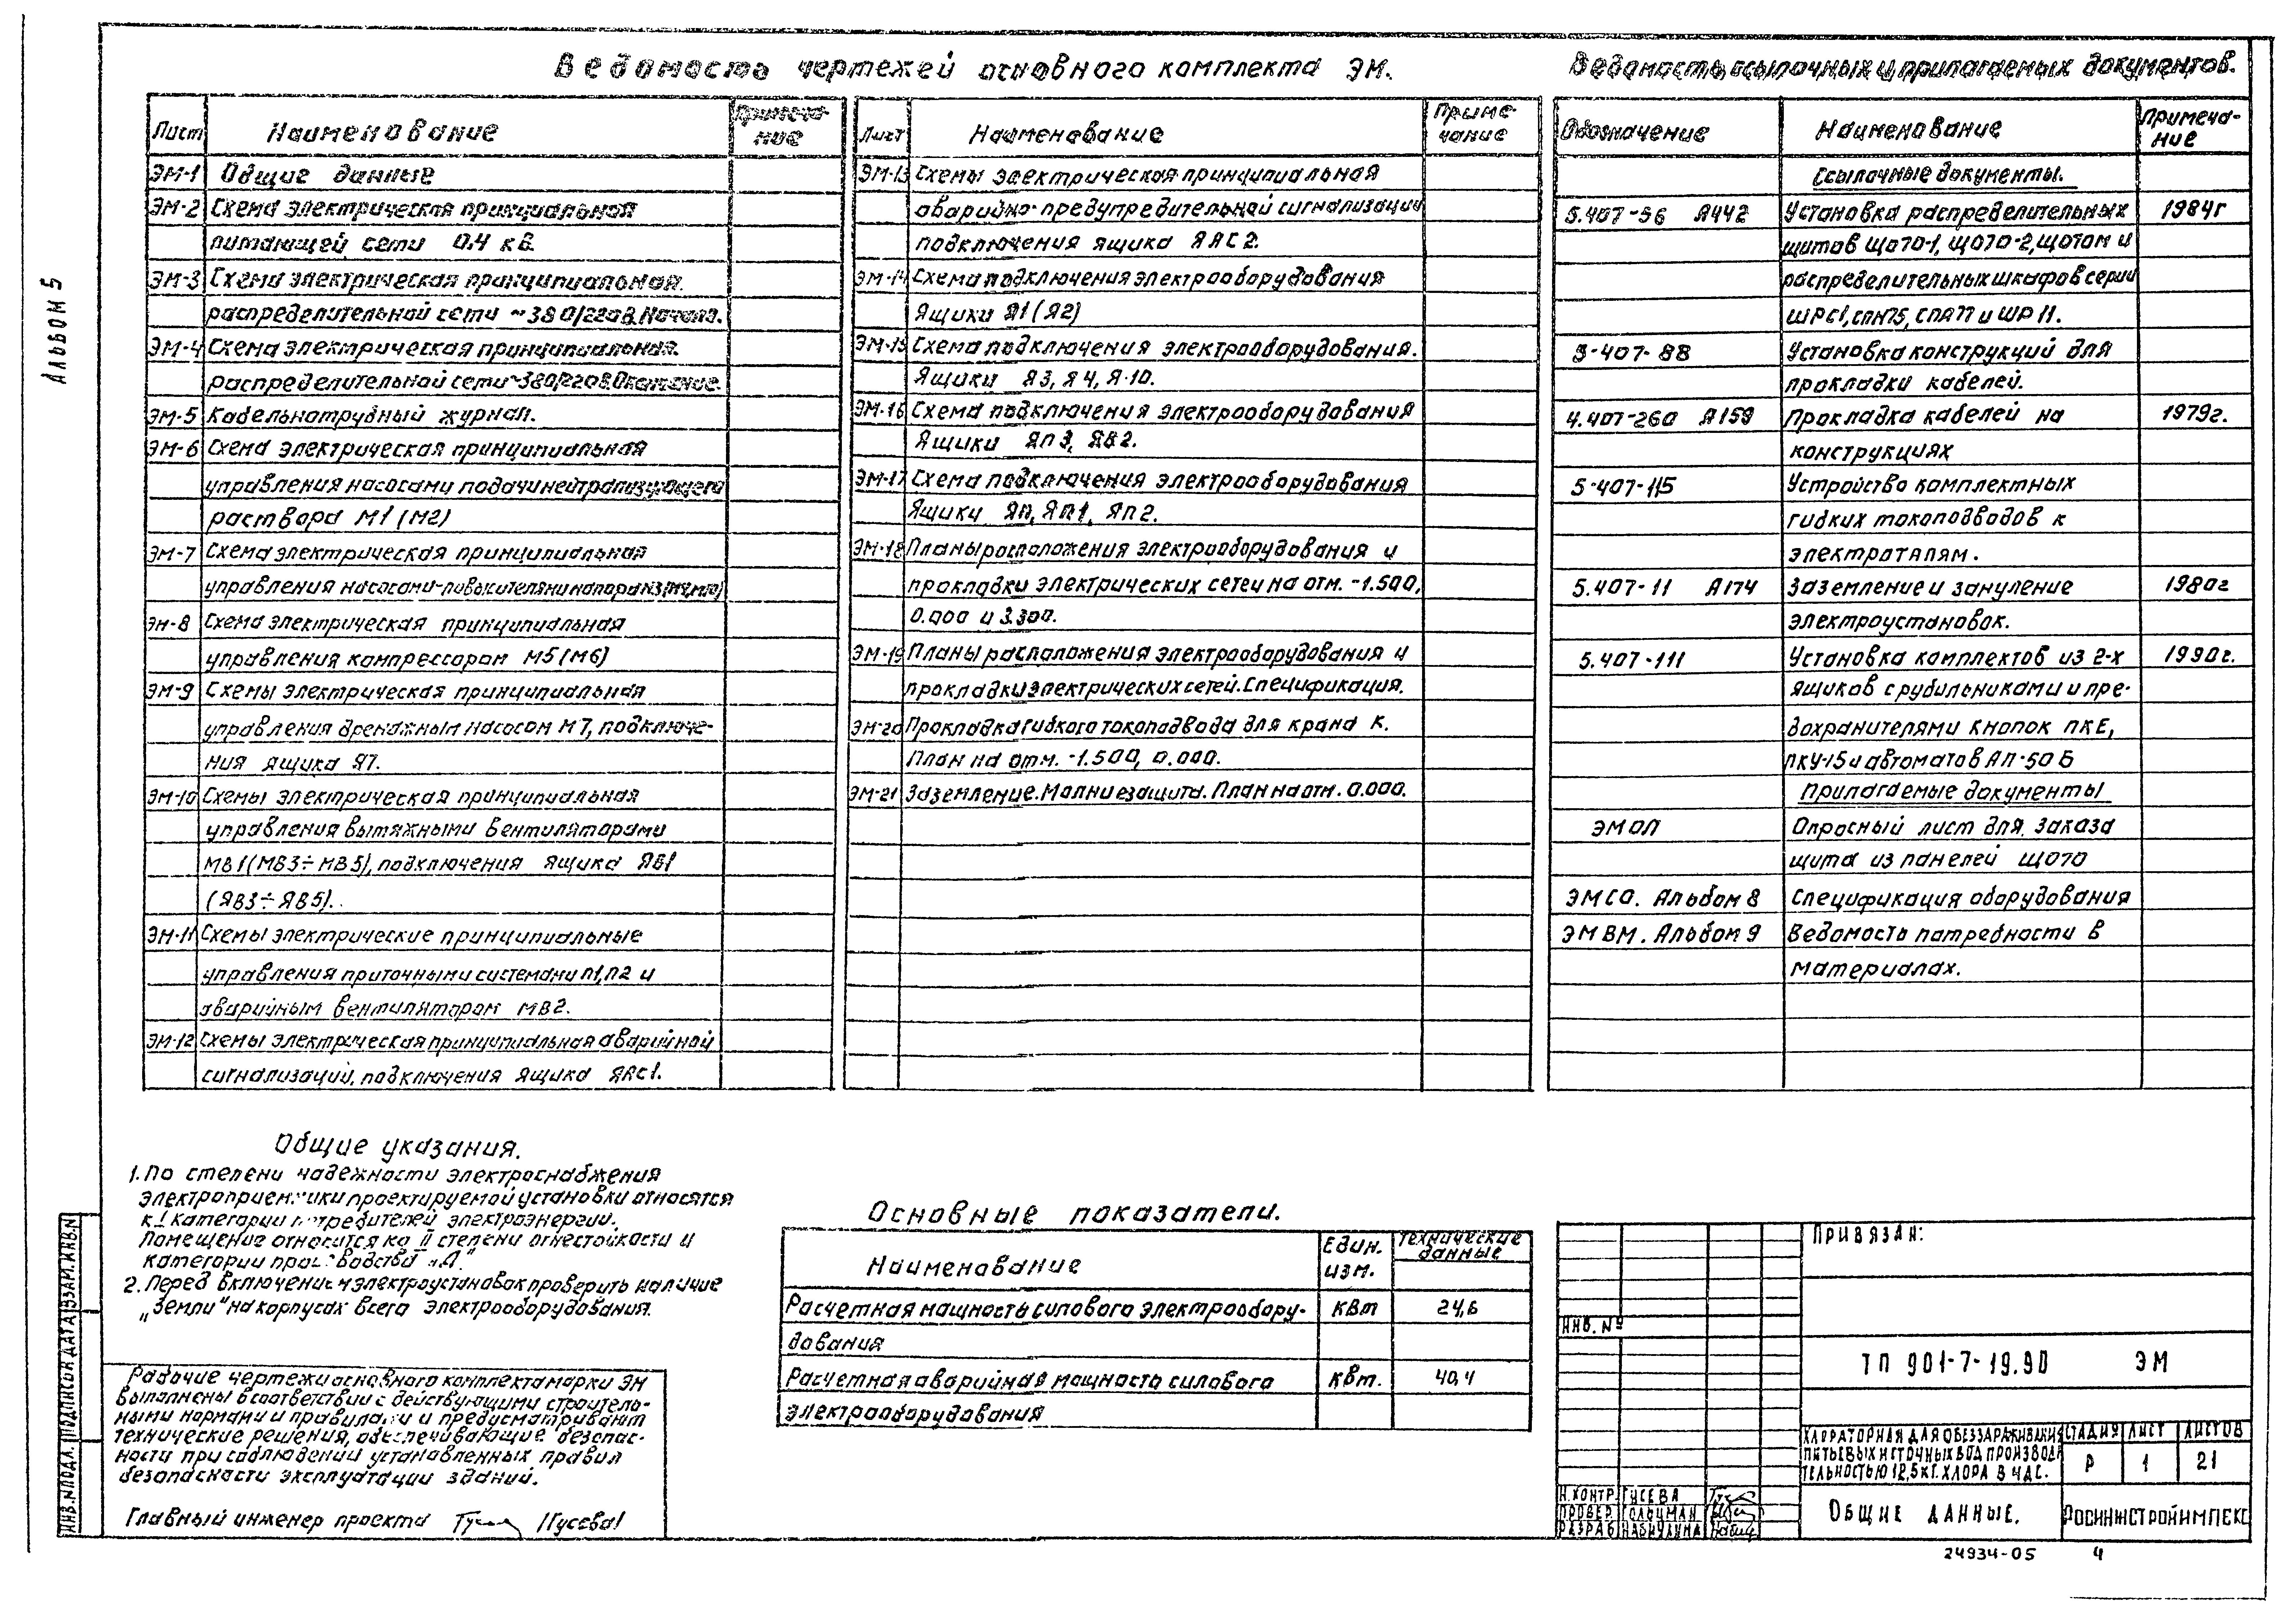 Альбом 5
Ведомость чертежей основного комплекта ЭМ.
Лист Наименование Примечание
ЭМ-1 Общие данные
ЭМ-2 Схема электрическая принципиальная
питающей сети 0.4 кВ.
ЭМ-3 Схема электрическая принципиальная
распределительной сети ~380/220В. Начало.
ЭМ-4 Схема электрическая принципиальная.
распределительной сети ~380/220В. Окончание.
ЭМ-5 Кабельнотрубный журнал.
ЭМ-6 Схема электрическая принципиальная
управления насосами подачи нейтрализующего
раствора М1 (М2)
ЭМ-7 Схема электрическая принципиальная
управления насосами-повысителями напора
ЭМ-8 Схема электрическая принципиальная
управления компрессором М5 (М6)
ЭМ-9 Схемы электрическая принципиальная
управления дренажным насосом М7, подключе-
ния ящика Я7.
ЭМ-10 Схемы электрическая принципиальная
управления вытяжными вентиляторами
МВ1 (МВ3÷МВ5), подключения ящика ЯВ1
(ЯВ3÷ЯВ5).
ЭМ-11 Схемы электрические принципиальные
управления приточными системами П1, П2 и
аварийным вентилятором МВ2.
ЭМ-12 Схемы электрическая принципиальная аварийной
сигнализаций, подключения ящика ЯАС1.
Лист Наименование Примечание
ЭМ-13 Схемы электрическая принципиальная
аварийно-предупредительной сигнализации
подключения ящика ЯАС2.
ЭМ-14 Схема подключения электрооборудования
Ящики Я1 (Я2)
ЭМ-15 Схема подключения электрооборудования.
Ящики Я3, Я4, Я-10.
ЭМ-16 Схема подключения электрооборудования
Ящики ЯП3, ЯВ2.
ЭМ-17 Схема подключения электрооборудования
Ящики ЯП, ЯП1, ЯП2.
ЭМ-18 Планы расположения электрооборудования и
прокладки электрических сетей на отм. -1.500,
0.000 и 3.300.
ЭМ-19 Планы расположения электрооборудования и
прокладки электрических сетей. Спецификация.
ЭМ-20 Прокладка гибкого токоподвода для крана К.
План на отм. -1.500, 0.000.
ЭМ-21 Заземление. Молниезащита. План на отм. 0.000.
Ведомость ссылочных и прилагаемых документов.
Обозначение Наименование Примечание
Ссылочные документы.
5.407-56 А442 Установка распределительных 1984г
щитов ЩО70-1, ЩО70-2, ЩО70М и
распределительных шкафов серии
ШРС1, СПМ75, СПА77 и ШР11.
5-407-88 Установка конструкций для
прокладки кабелей.
4.407-260 А159 Прокладка кабелей на 1979г.
конструкциях
5-407-115 Устройство комплектных
гибких токоподводов к
электроталям.
5.407-11 А174 Заземление и зануление 1980г
электроустановок.
5.407-111 Установка комплектов из 2-х 1990г.
ящиков с рубильниками и пре-
дохранителями кнопок ПКЕ,
ПКУ-15 и автоматов АП-50Б
Прилагаемые документы
ЭМОЛ Опросный лист для заказа
щита из панелей ЩО70
ЭМСО. Альбом 8 Спецификация оборудования
ЭМВМ. Альбом 9 Ведомость потребности в
материалах.
Общие указания.
1. По степени надежности электроснабжения
электроприемники проектируемой установки относятся
к I категории потребителей электроэнергии.
Помещение относится ко II степени огнестойкости и
категории производства "А."
2. Перед включением электроустановок проверить наличие
„Земли" на корпусах всего электрооборудования.
Рабочие чертежи основного комплекта марки ЭМ
выполнены в соответствии с действующими строитель-
ными нормами и правилами и предусматривают
технические решения, обеспечивающие безопас-
ности при соблюдении установленных правил
безопасности эксплуатации зданий.
Главный инженер проекта /Гусева/
Основные показатели.
Наименование Един. изм. Технические данные
Расчетная мощность силового электрообору- кВт 24,6
дования
Расчетная аварийная мощность силового кВт. 40,4
электрооборудования
ИНВ.№ПОДЛ. ПОДПИСЬ И ДАТА ВЗАМ.ИНВ.№
Привязан:
ИНВ. №
ТП 901-7-19.90 ЭМ
Хлораторная для обеззараживания
питьевых и сточных вод производи
тельностью 12,5 кг. хлора в час.
Стадия Лист Листов
Р 1 21
Н.контр. Гусева
Провер. Гольцман
Разраб. Набиулина
Общие данные.
Росинжстройимпекс
24934-05 4